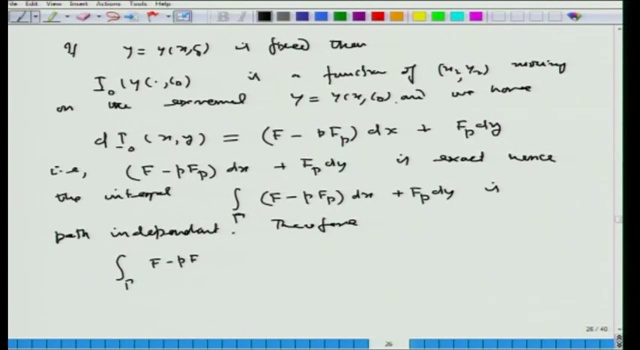 File Edit View Insert Actions Tools Help
If y = y(x,c) is fixed then
I₀(y(·,c₀) is a function of (x₂,y₂) moving
on the extremal y = y(x,c₀) and we have
d I₀(x,y) = (F - pFp) dx + Fp dy
i.e., (F - pFp) dx + Fp dy is exact hence
the integral ∫Γ (F - pFp) dx + Fp dy is
path independant. Therefore
∫Γ F - pF
26 / 40
26